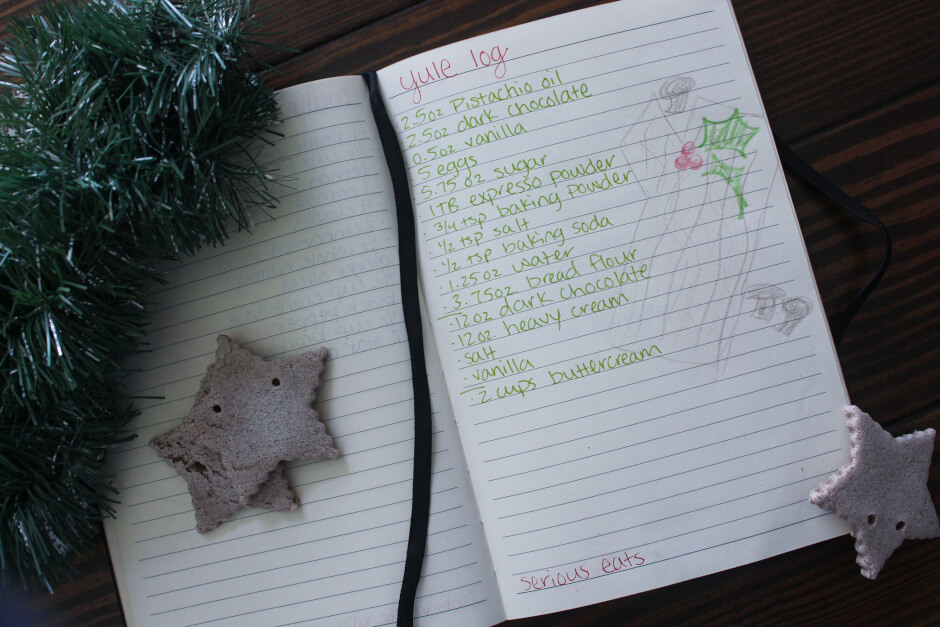 yule log
2.5oz Pistachio oil
2.5oz dark chocolate
0.5oz vanilla
5 eggs
5.75 oz sugar
1TB expresso powder
3/4 tsp baking powder
·1/2 tsp salt
·1/2 tsp baking soda
·1.25oz water
·3.75oz bread flour
·12oz dark chocolate
·12oz heavy cream
·salt
·vanilla
·2 cups buttercream
serious eats